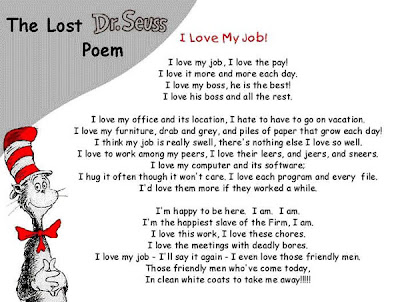 The Lost Dr. Seuss
Poem
I Love My Job!
I love my job, I love the pay!
I love it more and more each day.
I love my boss, he is the best!
I love his boss and all the rest.
I love my office and its location, I hate to have to go on vacation.
I love my furniture, drab and grey, and piles of paper that grow each day!
I think my job is really swell, there's nothing else I love so well.
I love to work among my peers, I love their leers, and jeers, and sneers.
I love my computer and its software;
I hug it often though it won't care. I love each program and every file.
I'd love them more if they worked a while.
I'm happy to be here. I am. I am.
I'm the happiest slave of the Firm, I am.
I love this work, I love these chores.
I love the meetings with deadly bores.
I love my job - I'll say it again - I even love those friendly men.
Those friendly men who've come today,
In clean white coats to take me away!!!!!